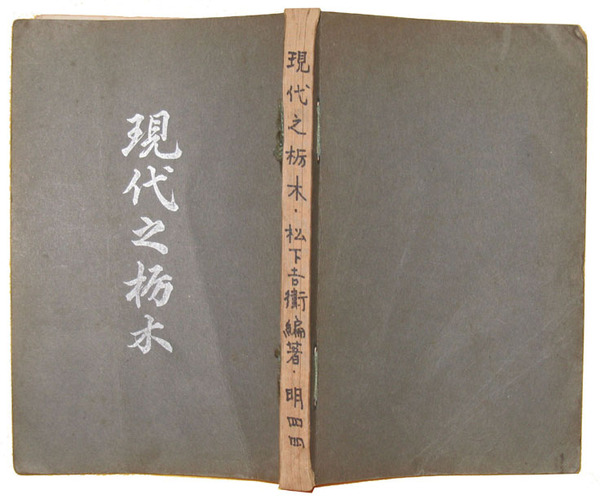 現代之栃木
現代之栃木・松下吉衛編著・明四四